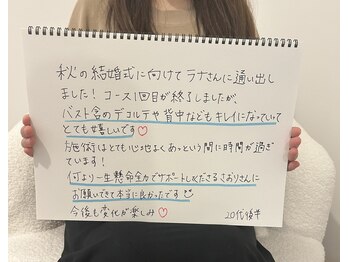 秋の結婚式に向けてラナさんに通い出し
ました！コース1回目が終了しましたが、
バスト含のデコルテや背中などもキレイになっていて
とても嬉しいです♡
施術はとても心地よくあっという間に時間が過ぎ
ています！
何より一生懸命全力でサポートしてくださるさおりさんに
お願いできて本当に良かったです
今後も変化が楽しみ♡
20代後半